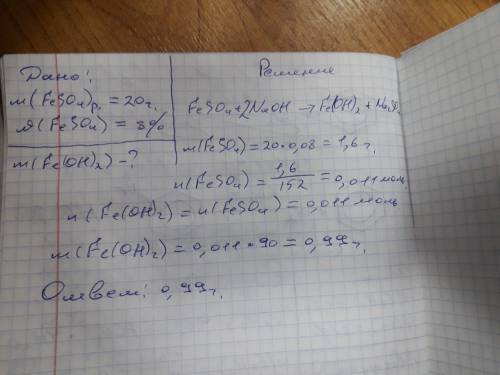 Дано:
m(FeSO₄)р. = 20г.
ω(FeSO₄) = 8%
m(Fe(OH)₂) - ?
Решение
FeSO₄ + 2NaOH → Fe(OH)₂ + Na₂SO₄
m(FeSO₄) = 20 • 0,08 = 1,6г.
n(FeSO₄) = 1,6/152 = 0,011 моль
n(Fe(OH)₂) = n(FeSO₄) = 0,011 моль
m(Fe(OH)₂) = 0,011 • 90 = 0,99г.
Ответ: 0,99г.